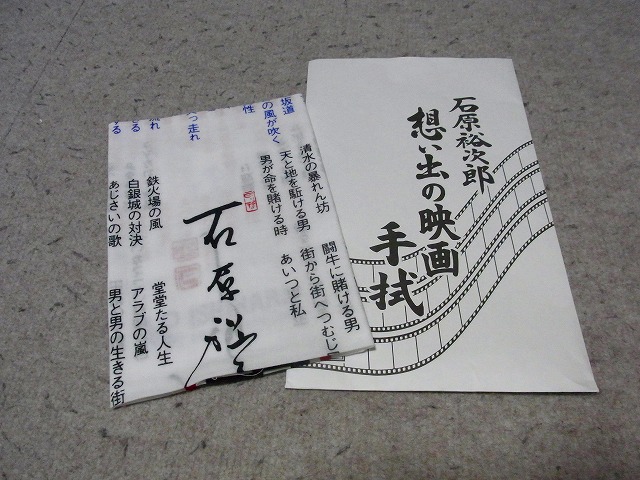 石原裕次郎
想い出の映画
手拭
闘牛に賭ける男
街から街へつむじ
あいつと私
清水の暴れん坊
天と地を駈ける男
男が命を賭ける時
坂道
の風が吹く
性
っ走れ
流れ
せる
する
石原裕
鉄火場の風
白銀城の対決
あじさいの歌
堂堂たる人生
アラブの嵐
男と男の生きる街